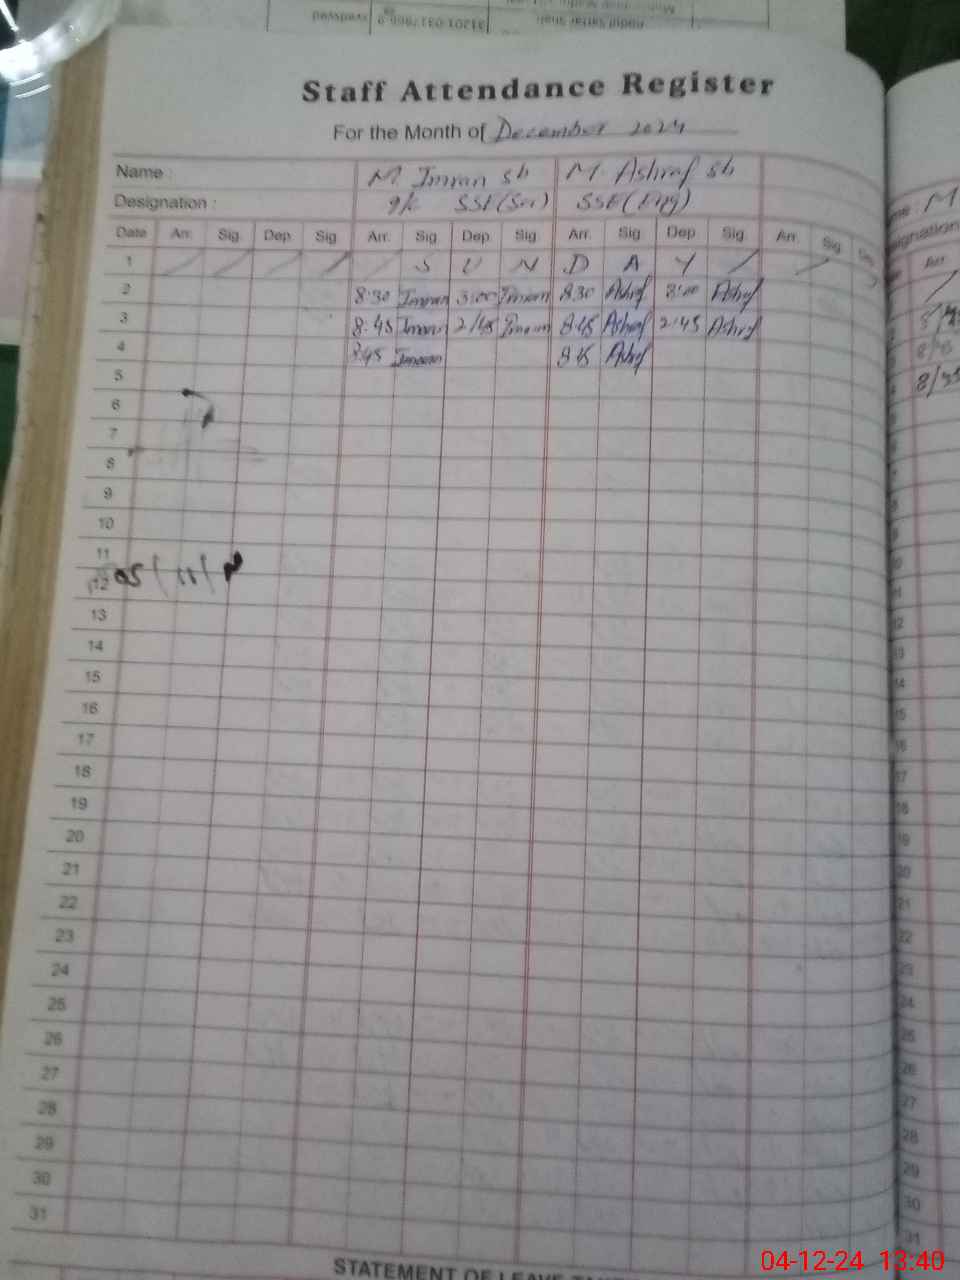 Staff Attendance Register
For the Month of December 2024
Name : M. Imran Sb M. Ashraf Sb
Designation : SSE (Sci) SSE (Eng)
Date Arr. Sig. Dep. Sig. Arr. Sig. Dep. Sig. Arr. Sig. Dep. Sig. Arr. Sig. Dep.
1 S U N D A Y
2 8:30 Imran 3:00 Imran 8:30 Ashraf 3:00 Ashraf
3 8:45 Imran 2:45 Imran 8:45 Ashraf 2:45 Ashraf
4 8:45 Imran 8:45 Ashraf
5
6
7
8
9
10
11
12
13
14
15
16
17
18
19
20
21
22
23
24
25
26
27
28
29
30
31
STATEMENT OF LEAVE
04-12-24 13:40